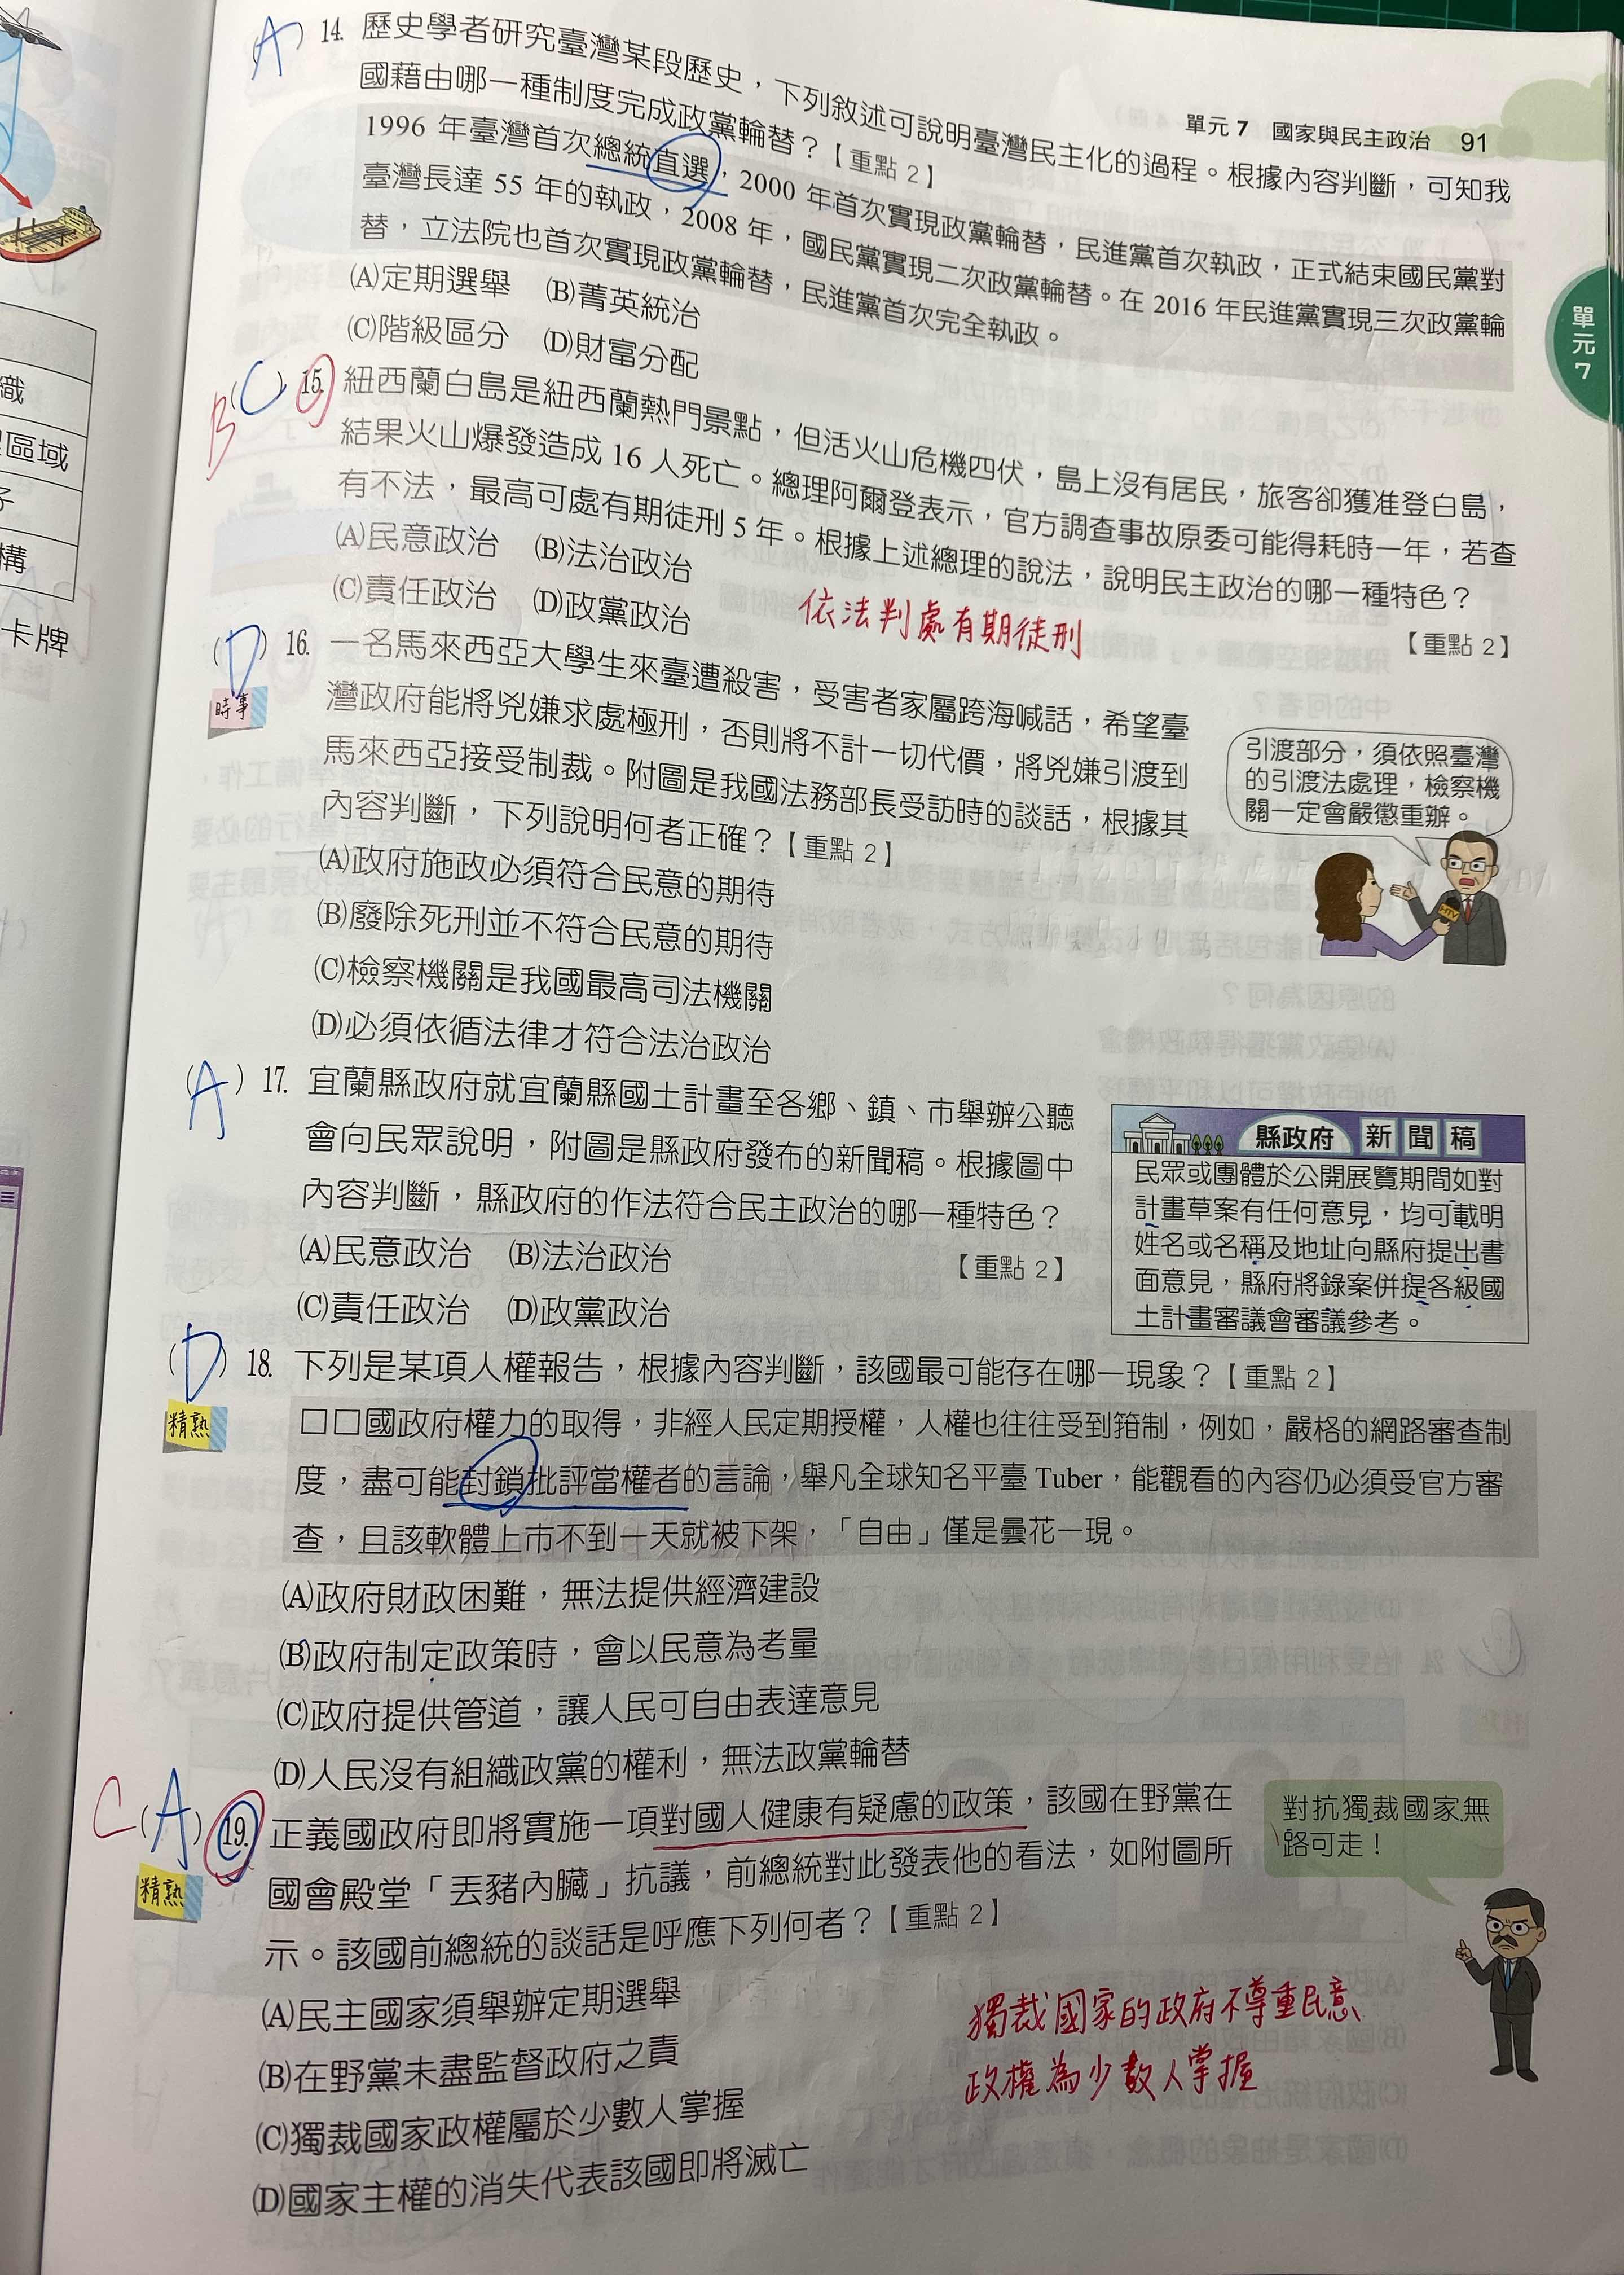 單元 7 國家與民主政治 91
單元7
(A) 14. 歷史學者研究臺灣某段歷史，下列敘述可說明臺灣民主化的過程。根據內容判斷，可知我
國藉由哪一種制度完成政黨輪替？【重點 2】
1996 年臺灣首次總統直選，2000 年首次實現政黨輪替，民進黨首次執政，正式結束國民黨對
臺灣長達 55 年的執政，2008 年，國民黨實現二次政黨輪替。在 2016 年民進黨實現三次政黨輪
替，立法院也首次實現政黨輪替，民進黨首次完全執政。
(A)定期選舉 (B)菁英統治
(C)階級區分 (D)財富分配
B (C) 15. 紐西蘭白島是紐西蘭熱門景點，但活火山危機四伏，島上沒有居民，旅客卻獲准登白島，
結果火山爆發造成 16 人死亡。總理阿爾登表示，官方調查事故原委可能得耗時一年，若查
有不法，最高可處有期徒刑 5 年。根據上述總理的說法，說明民主政治的哪一種特色？
(A)民意政治 (B)法治政治
【重點 2】
(C)責任政治 (D)政黨政治
依法判處有期徒刑
(D) 16. 一名馬來西亞大學生來臺遭殺害，受害者家屬跨海喊話，希望臺
時事
灣政府能將兇嫌求處極刑，否則將不計一切代價，將兇嫌引渡到
馬來西亞接受制裁。附圖是我國法務部長受訪時的談話，根據其
內容判斷，下列說明何者正確？【重點 2】
(A)政府施政必須符合民意的期待
(B)廢除死刑並不符合民意的期待
(C)檢察機關是我國最高司法機關
(D)必須依循法律才符合法治政治
引渡部分，須依照臺灣
的引渡法處理，檢察機
關一定會嚴懲重辦。
HTV
(A) 17. 宜蘭縣政府就宜蘭縣國土計畫至各鄉、鎮、市舉辦公聽
會向民眾說明，附圖是縣政府發布的新聞稿。根據圖中
內容判斷，縣政府的作法符合民主政治的哪一種特色？
(A)民意政治 (B)法治政治
【重點 2】
(C)責任政治 (D)政黨政治
縣政府 新聞稿
民眾或團體於公開展覽期間如對
計畫草案有任何意見，均可載明
姓名或名稱及地址向縣府提出書
面意見，縣府將錄案併提各級國
土計畫審議會審議參考。
(D) 18. 下列是某項人權報告，根據內容判斷，該國最可能存在哪一現象？【重點 2】
精熟
□□國政府權力的取得，非經人民定期授權，人權也往往受到箝制，例如，嚴格的網路審查制
度，盡可能封鎖批評當權者的言論，舉凡全球知名平臺 Tuber，能觀看的內容仍必須受官方審
查，且該軟體上市不到一天就被下架，「自由」僅是曇花一現。
(A)政府財政困難，無法提供經濟建設
(B)政府制定政策時，會以民意為考量
(C)政府提供管道，讓人民可自由表達意見
(D)人民沒有組織政黨的權利，無法政黨輪替
C (A) 19. 正義國政府即將實施一項對國人健康有疑慮的政策，該國在野黨在
精熟
國會殿堂「丟豬內臟」抗議，前總統對此發表他的看法，如附圖所
示。該國前總統的談話是呼應下列何者？【重點 2】
(A)民主國家須舉辦定期選舉
(B)在野黨未盡監督政府之責
(C)獨裁國家政權屬於少數人掌握
(D)國家主權的消失代表該國即將滅亡
對抗獨裁國家無
路可走！
獨裁國家的政府不尊重民意、
政權為少數人掌握
織
區域
子
構
卡牌